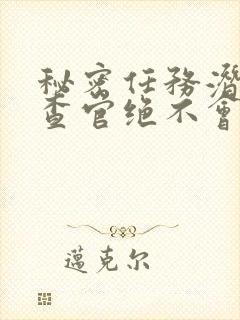 秘密任務潛
查官绝不會
邁克尔